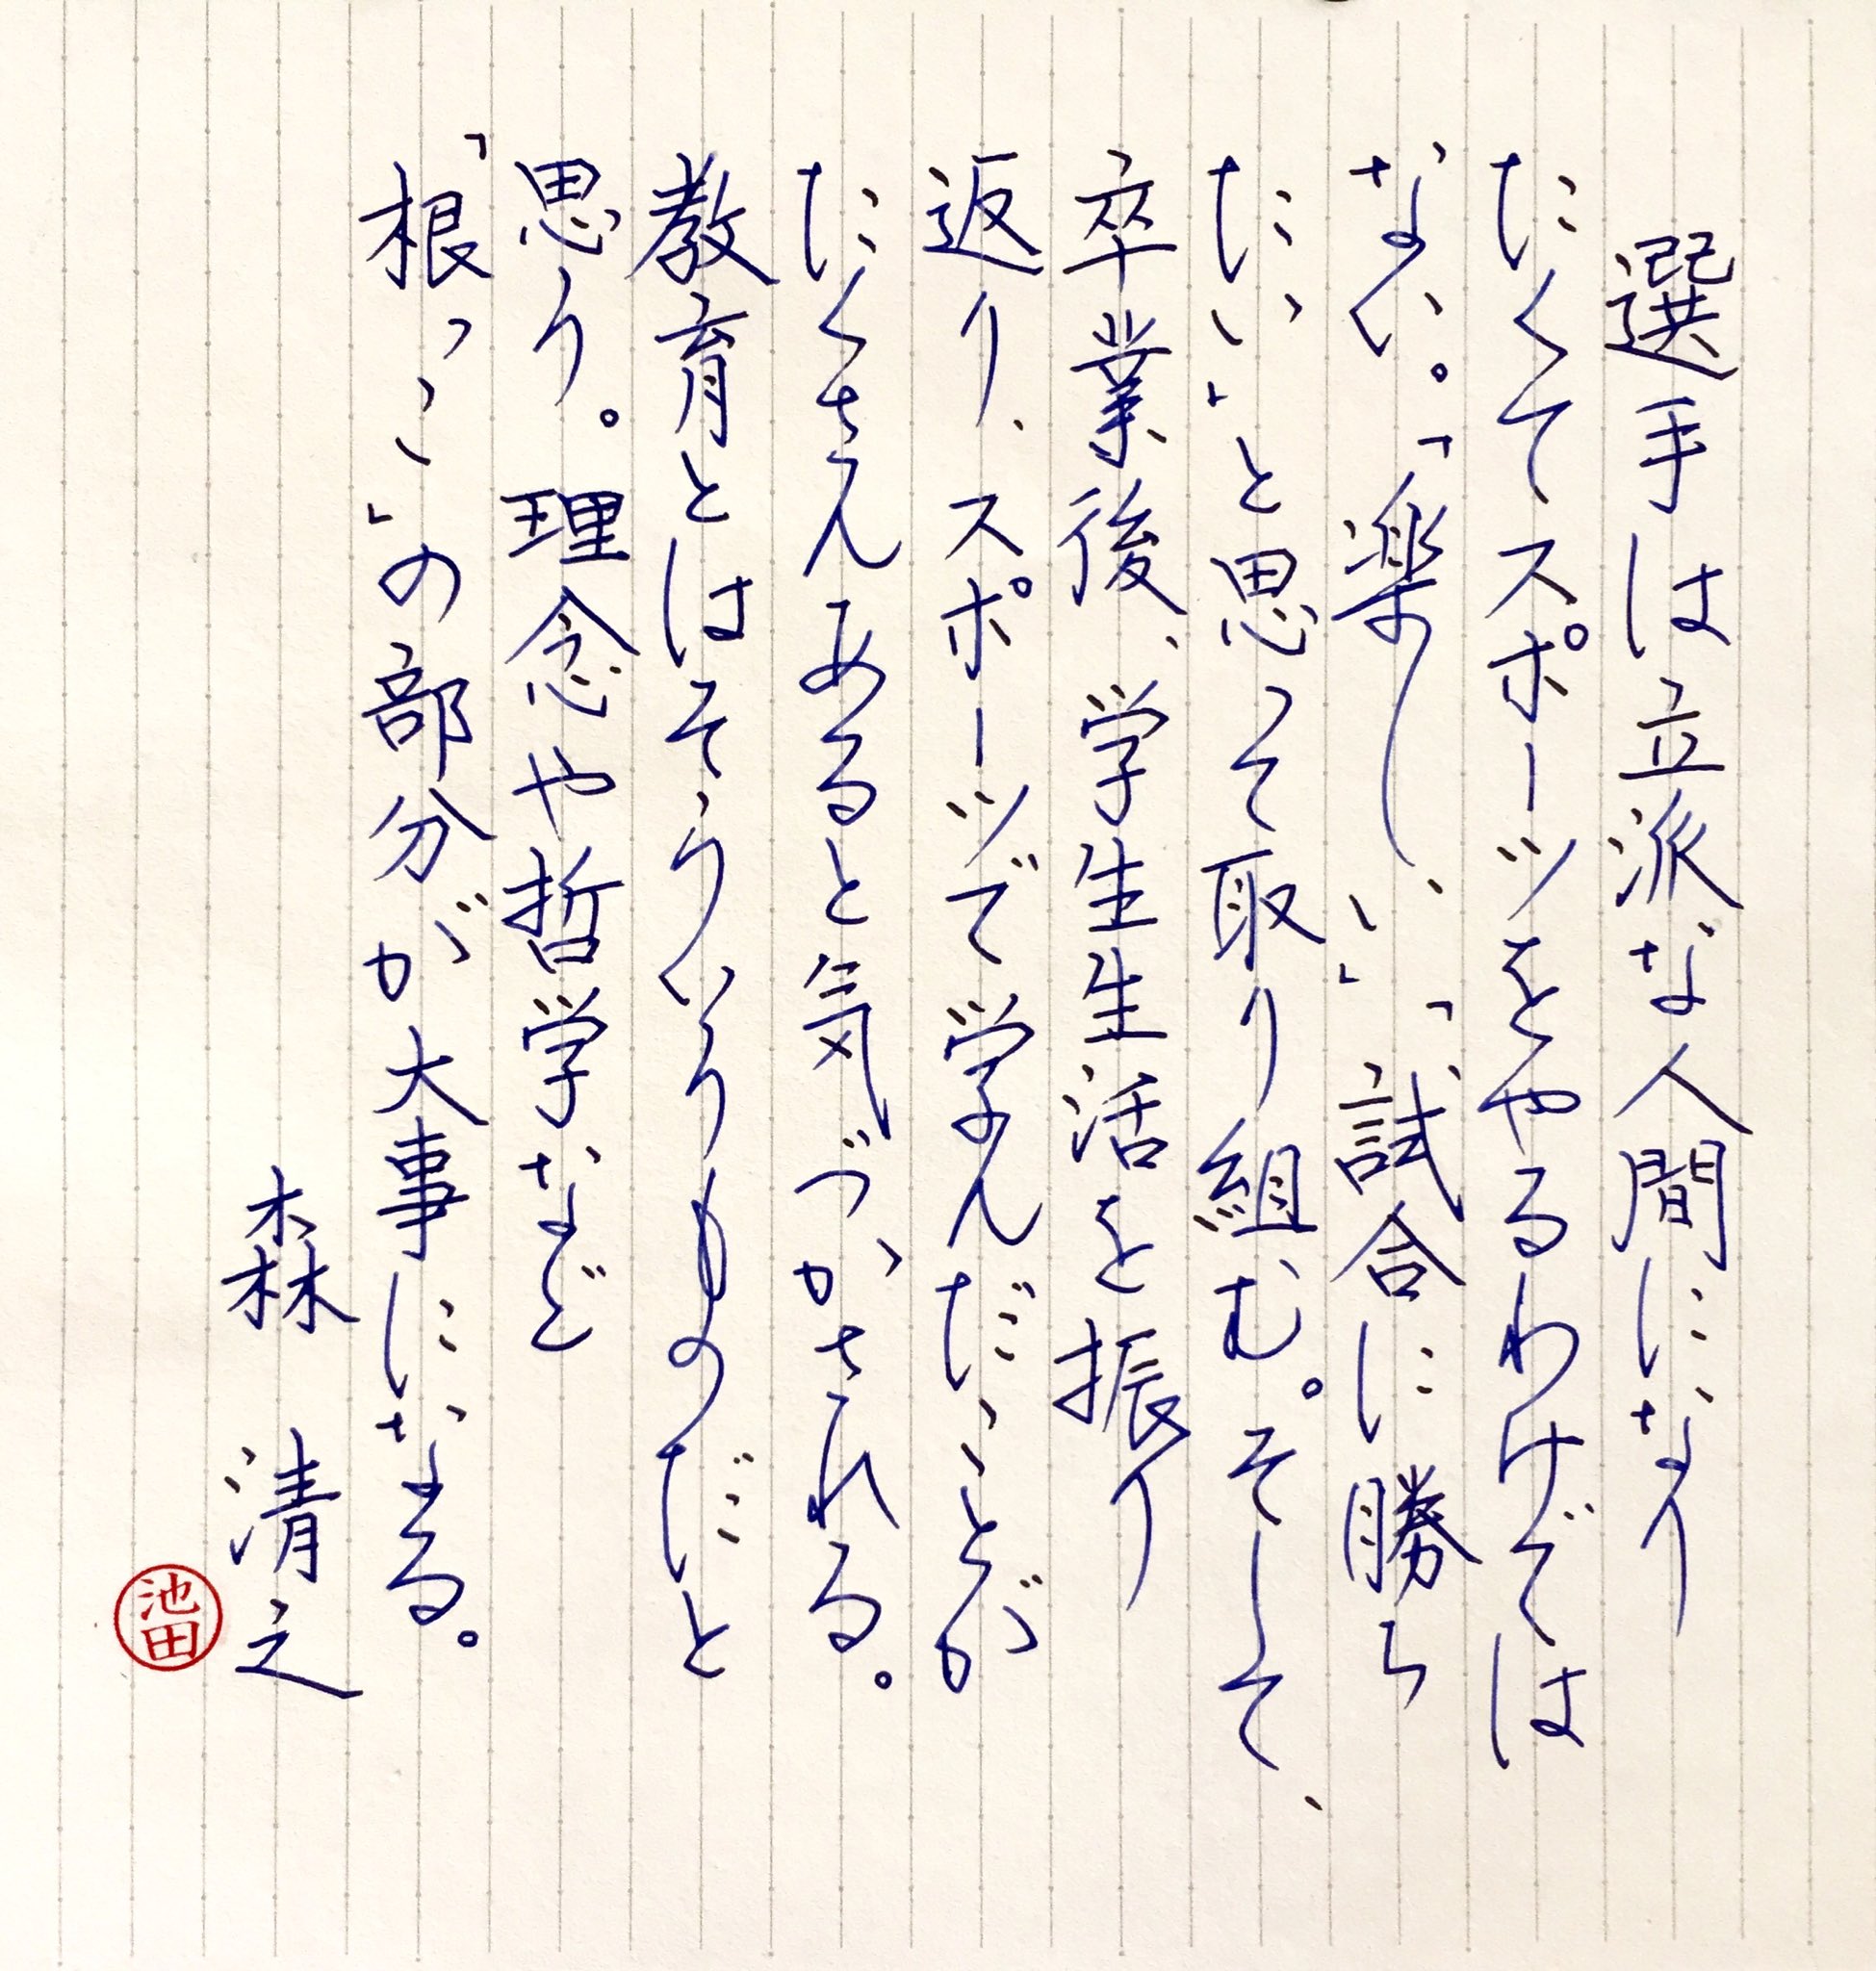 選手は立派な人間になり
たくてスポーツをやるわけでは
ない。「楽しい」「試合に勝ち
たい」と思って取り組む。そして、
卒業後、学生生活を振り
返り、スポーツで学んだことが
たくさんあると気づかされる。
教育とはそういうものだと
思う。理念や哲学など
「根っこ」の部分が大事になる。
森 清之
池田